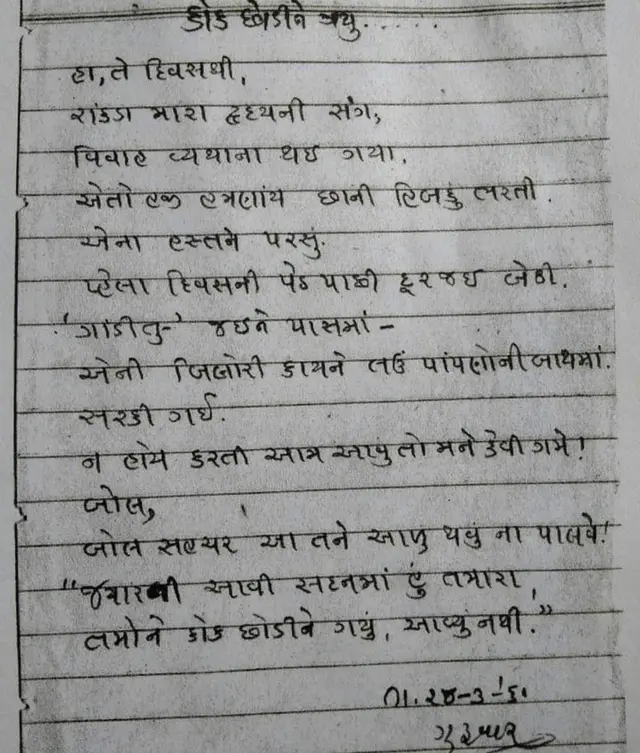 કોક છોડીને ગયું......
હા, તે દિવસથી,
રાંકડા મારા હૃદયની સંગ,
વિવાહ વ્યથાના થઇ ગયા.
એતો હજી હમણાંય છાની હિબકું ભરતી.
એના હસ્તને પરસું.
પ્હેલા દિવસની પેઠ પાછી દૂર જઇ બેઠી.
'ગાંડી તું-' જઇને પાસમાં -
એની બિલોરી કાયને લઉં પાંપણોની બાથમાં.
સરકી ગઈ.
ન હોયે કરતી આમ આવુ તો મને કેવી ગમે!
બોલ,
બોલ સહચર આ તને આવુ થવું ના પાલવે!
"જ્યારની આવી સદનમાં હું તમારા,
તમોને કોક છોડીને ગયું, આવ્યું નથી."
તા. ૨૪-૩-'૬૦